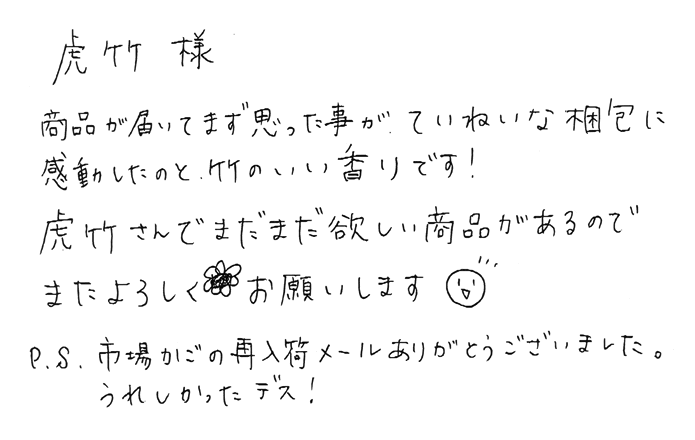 虎竹 様
商品が届いてまず思った事が、ていねいな梱包に
感動したのと、竹のいい香りです!
虎竹さんでまだまだ欲しい商品があるので
またよろしくお願いします
P.S. 市場かごの再入荷メールありがとうございました。
うれしかったデス!